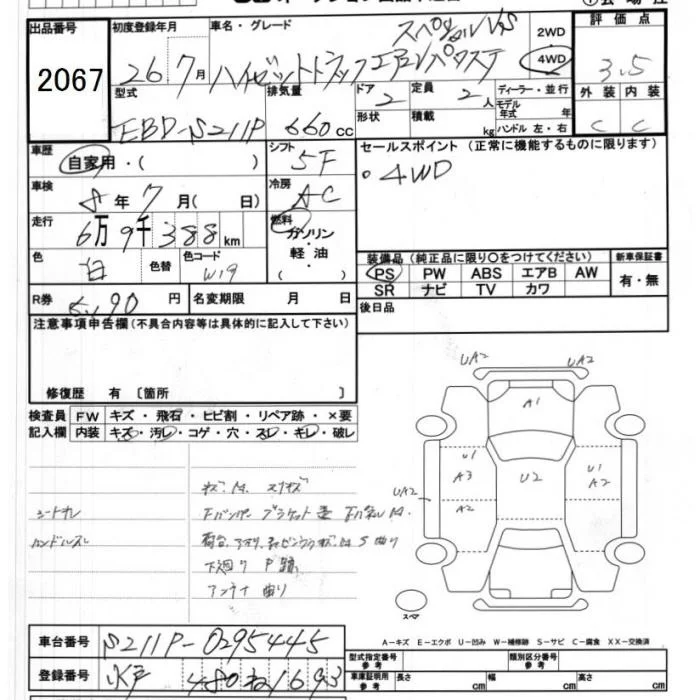 出品番号
2067
初度登録年月
26年7月
車名・グレード
スペシャルVS
ハイゼットトラック エアコンパワステ
2WD
4WD
評価点
3.5
外装 内装
C C
型式
EBD-S211P
排気量
660cc
ドア
2
定員
2人
ディーラー・並行
モデル年式 年
形状
積載 kg
ハンドル 左・右
車歴
自家用・( )
シフト
5F
セールスポイント (正常に機能するものに限ります)
・4WD
車検
8年7月( 日)
冷房
AC
走行
6万9千388km
燃料
ガソリン・軽油・
色
白
色替
色コード
W19
装備品 (純正品に限り○をつけてください)
新車保証書
PS PW ABS エアB AW
SR ナビ TV カワ
有・無
R券
5,190円
名変期限 月 日
後日品
注意事項申告欄(不具合内容等は具体的に記入して下さい)
修復歴 有 〔箇所 〕
検査員記入欄
FW キズ・飛石・ヒビ割・リペア跡・×要
内装 キズ・汚レ・コゲ・穴・スレ・キレ・破レ
UA2 UA2
A1
U1
A3
U2
U1
A2
UA2
A2
シートキレ
ハンドルスレ
スペア
下廻り
アンテナ 曲り
A-キズ E-エクボ U-凹み W-補修跡 S-サビ C-腐食 XX-交換済
車台番号
S211P-0295445
登録番号
水戸 480 ね 1693
型式指定番号 参考
類別区分番号 参考
車庫証明用 参考
長さ cm 幅 cm 高さ cm